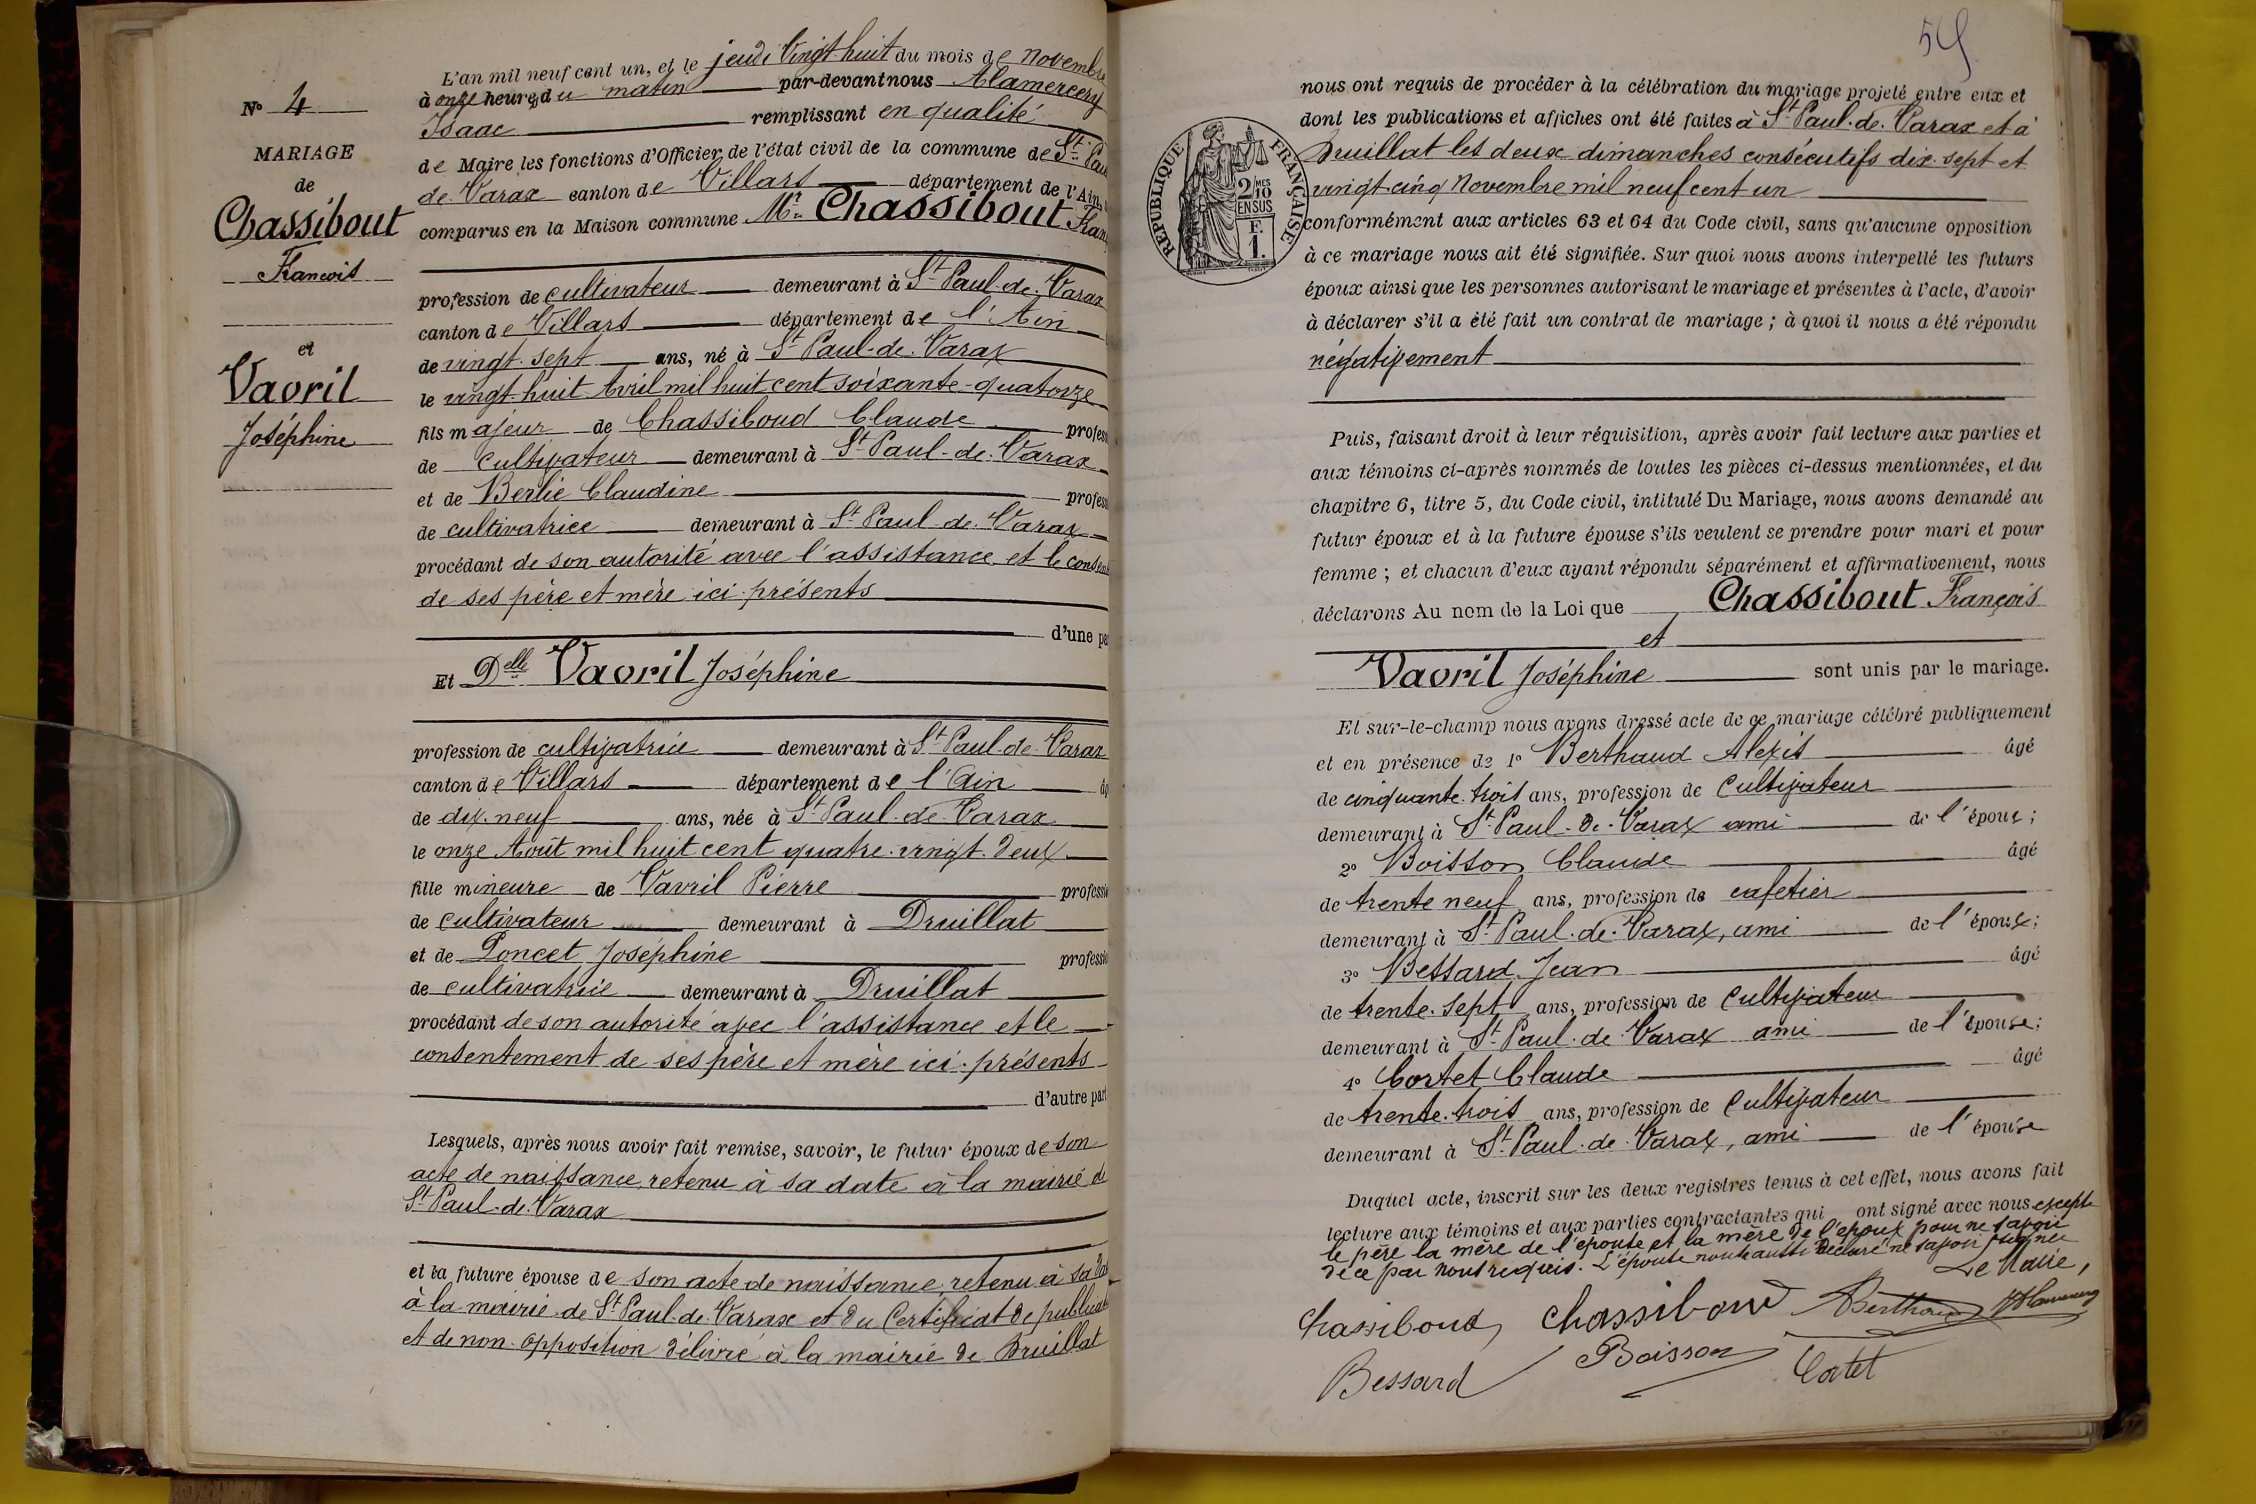 N° 4
MARIAGE
de
Chassibout
François
et
Vavril
Joséphine
L'an mil neuf cent un, et le jeudi Vingt huit du mois de Novembre
à onze heures du matin par-devant nous Alamercery
Isaac remplissant en qualité
de Maire les fonctions d'Officier de l'état civil de la commune de St Paul
de Varax canton de Villars département de l'Ain
comparus en la Maison commune Mr Chassibout Fran
profession de cultivateur demeurant à St Paul-de-Varax
canton de Villars département de l'Ain
de vingt-sept ans, né à St Paul-de-Varax
le vingt-huit Avril mil huit cent soixante-quatorze
fils majeur de Chassiboud Claude profess
de cultivateur demeurant à St Paul-de-Varax
et de Berlie Claudine profess
de cultivatrice demeurant à St Paul-de-Varax
procédant de son autorité avec l'assistance et le consen
de ses père et mère ici présents
d'une pa
Et Delle Vavril Joséphine
profession de cultivatrice demeurant à St Paul-de-Varax
canton de Villars département de l'Ain âg
de dix-neuf ans, née à St Paul-de-Varax
le onze Août mil huit cent quatre-vingt-deux
fille mineure de Vavril Pierre professi
de cultivateur demeurant à Druillat
et de Poncet Joséphine professi
de cultivatrice demeurant à Druillat
procédant de son autorité avec l'assistance et le
consentement de ses père et mère ici-présents
d'autre part
Lesquels, après nous avoir fait remise, savoir, le futur époux de son
acte de naissance retenu à sa date à la mairie de
St Paul-de-Varax
et la future épouse de son acte de naissance, retenu à sa dat
à la mairie de St Paul-de-Varax et du Certificat de publicat
et de non-opposition délivré à la mairie de Druillat
59
RÉPUBLIQUE FRANÇAISE
2/10 MES
EN SUS
F.
1.
nous ont requis de procéder à la célébration du mariage projeté entre eux et
dont les publications et affiches ont été faites à St Paul-de-Varax et à
Druillat les deux dimanches consécutifs dix-sept et
vingt-cinq Novembre mil neuf cent un
conformément aux articles 63 et 64 du Code civil, sans qu'aucune opposition
à ce mariage nous ait été signifiée. Sur quoi nous avons interpellé les futurs
époux ainsi que les personnes autorisant le mariage et présentes à l'acte, d'avoir
à déclarer s'il a été fait un contrat de mariage ; à quoi il nous a été répondu
négativement
Puis, faisant droit à leur réquisition, après avoir fait lecture aux parties et
aux témoins ci-après nommés de toutes les pièces ci-dessus mentionnées, et du
chapitre 6, titre 5, du Code civil, intitulé Du Mariage, nous avons demandé au
futur époux et à la future épouse s'ils veulent se prendre pour mari et pour
femme ; et chacun d'eux ayant répondu séparément et affirmativement, nous
déclarons Au nom de la Loi que Chassibout François
et
Vavril Joséphine sont unis par le mariage.
Et sur-le-champ nous avons dressé acte de ce mariage célébré publiquement
et en présence de 1° Berthaud Alexis âgé
de cinquante-trois ans, profession de Cultivateur
demeurant à St Paul-de-Varax ami de l'époux ;
2° Boisson Claude âgé
de trente neuf ans, profession de cafetier
demeurant à St Paul-de-Varax, ami de l'époux ;
3° Bessard Jean âgé
de trente-sept ans, profession de Cultivateur
demeurant à St Paul-de-Varax ami de l'épouse ;
4° Cortet Claude âgé
de trente-trois ans, profession de Cultivateur
demeurant à St Paul-de-Varax, ami de l'épouse
Duquel acte, inscrit sur les deux registres tenus à cet effet, nous avons fait
lecture aux témoins et aux parties contractantes qui ont signé avec nous excepté
le père la mère de l'épouse et la mère de l'époux pour ne savoir
de ce par nous requis. L'épouse nous aussi déclaré ne savoir signer
Le Maire,
Chassiboud Chassiboud Berthaud Alamercery
Bessard Boisson Cortet